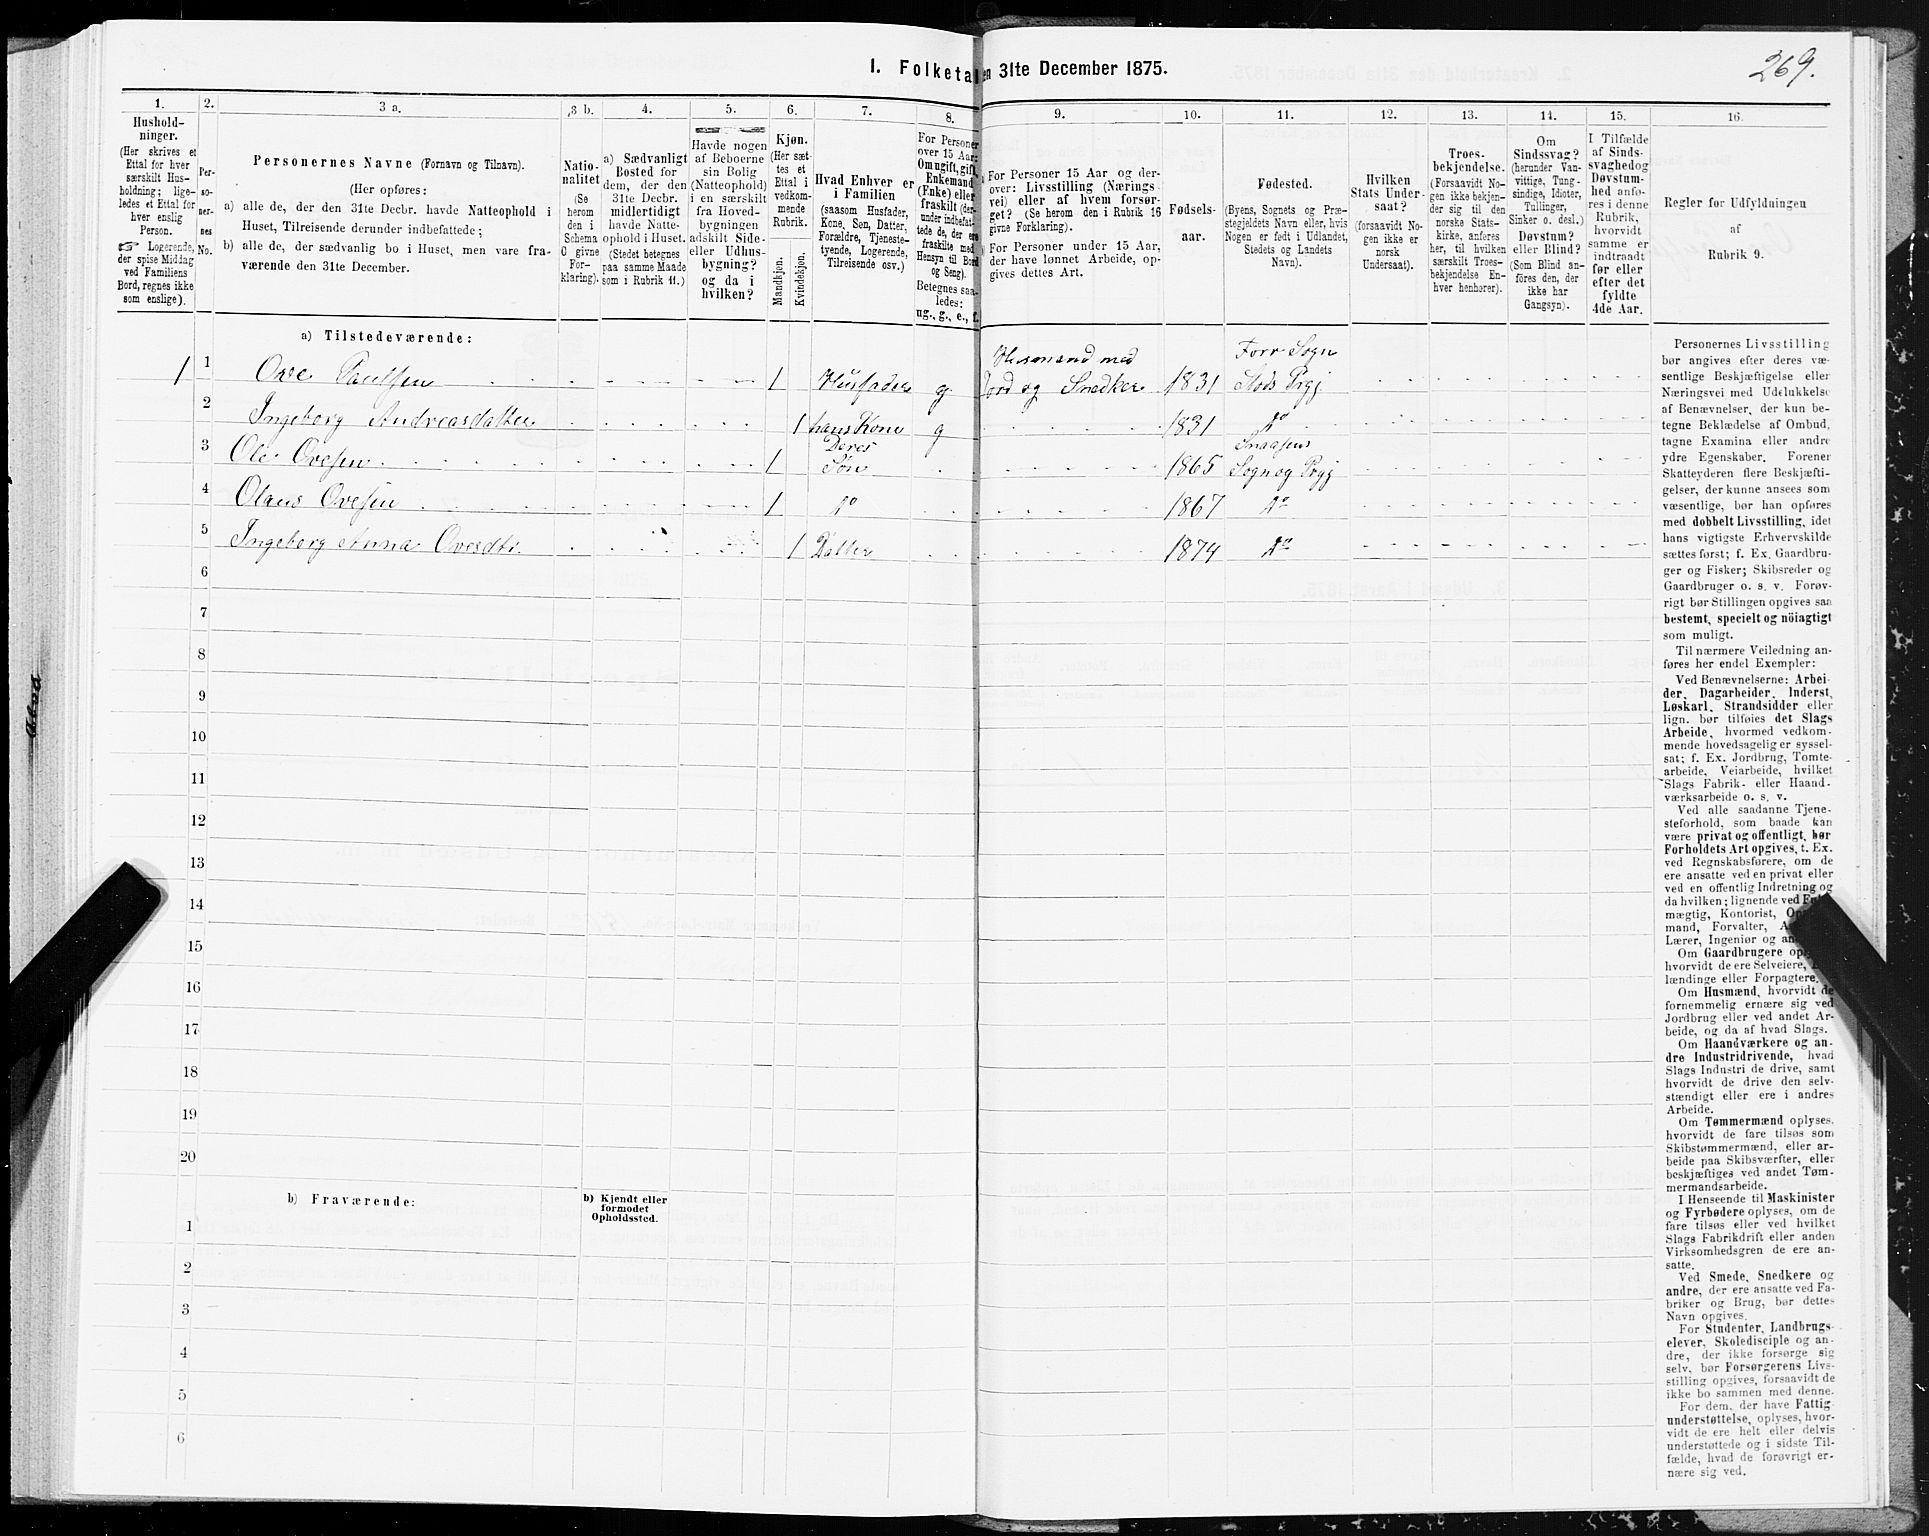 269.
1. Folketa en 31te December 1875.
1.
2.
3 a.
3 b.
4.
5.
6.
7.
8.
9.
10.
11.
12.
13.
14.
15.
16.
Hushold-
ninger.
(Her skrives et
Ettal for hver
særskilt Hus-
holdning; lige-
ledes et Ettal for
hver enslig
Person.
☞ Logerende,
der spise Middag
ved Familiens
Bord, regnes ikke
som enslige).
Per-
so-
ner-
nes
No.
Personernes Navne (Fornavn og Tilnavn).
(Her opføres:
a) alle de, der den 31te Decbr. havde Natteophold i
Huset, Tilreisende derunder indbefattede;
b) alle de, der sædvanlig bo i Huset, men vare fra-
værende den 31te December.
Natio-
nalitet
(Se
herom
den i
Schema
O givne
For-
klaring).
a) Sædvanligt
Bosted for
dem, der den
31te Decbr.
midlertidigt
havde Natte-
ophold i Huset.
(Stedet betegnes
paa samme Maade
som i Rubrik 11.)
Havde nogen
af Beboerne
sin Bolig
(Natteophold)
i en særskilt
fra Hoved-
bygningen
adskilt Side-
eller Udhus-
bygning?
og da i
hvilken?
Kjøn.
(Her sæt-
tes et
Ettal i
vedkom-
mende
Rubrik.
Mandkjøn.
Kvindekjøn.
Hvad Enhver er
i Familien
(saasom Husfader,
Kone, Søn, Datter,
Forældre, Tjeneste-
tyende, Logerende,
Tilreisende osv.)
For Personer
over 15 Aar:
Om ugift, gift,
Enkemand
(Enke) eller
fraskilt (der-
under indbefat-
tede de, der ere
fraskilte med
Hensyn til Bord
og Seng).
Betegnes saa-
ledes:
ug., g., e., f.
For Personer 15 Aar og der-
over: Livsstilling (Nærings-
vei) eller af hvem forsør-
get? (Se herom den i Rubrik 16
givne Forklaring).
For Personer under 15 Aar,
der have lønnet Arbeide, op-
gives dettes Art.
Fødsels-
aar.
Fødested.
(Byens, Sognets og Præ-
stegjeldets Navn eller, hvis
Nogen er født i Udlandet,
Stedets og Landets
Navn).
Hvilken
Stats Under-
saat?
(forsaavidt No-
gen ikke er
norsk
Undersaat).
Troes-
bekjendelse.
(Forsaavidt No-
gen ikke bekjen-
der sig til den
norske Stats-
kirke, anføres
her, til hvilken
særskilt Troes-
bekjendelse En-
hver henhører).
Om
Sindssvag?
(herunder Van-
vittige, Tung-
sindige, Idioter,
Tullinger,
Sinker o. desl.)
Døvstum?
eller Blind?
(Som Blind an-
føres den, der
ikke har
Gangsyn).
I Tilfælde
af Sinds-
svaghed og
Døvstum-
hed anfø-
res i denne
Rubrik,
hvorvidt
samme er
indtraadt
før eller
efter det
fyldte
4de Aar.
Regler for Udfyldningen
af
Rubrik 9.
a) Tilstedeværende:
1 1 Ove Paulsen 1 Husfader g Husmand med Jord og Snedker 1831 Forr Sogn Stods Prgj
2 Ingeborg Andreasdatter 1 hans Kone g 1831 Do
3 Ole Ovesen 1 Deres Søn 1865 Snaasens Sogn og Prgj
4 Olaus Ovesen 1 do 1867 Do
5 Ingeborg Anna Ovesdtr. 1 Datter 1874 Do
6
7
8
9
10
11
12
13
14
15
16
17
18
19
20
b) Fraværende:
b) Kjendt eller
formodet
Opholdssted.
1
2
3
4
5
6
Personernes Livsstilling
bør angives efter deres væ-
sentlige Beskjæftigelse eller
Næringsvei med Udelukkelse
af Benævnelser, der kun be-
tegne Beklædelse af Ombud,
tagne Examina eller andre
ydre Egenskaber. Forener
Skatteyderen flere Beskjæfti-
gelser, der kunne ansees som
væsentlige, bør han opføres
med dobbelt Livsstilling, idet
hans vigtigste Erhvervskilde
sættes først; f. Ex. Gaardbru-
ger og Fisker; Skibsreder og
Gaardbruger o. s. v. Forøv-
rigt bør Stillingen opgives saa
bestemt, specielt og nöiagtigt
som muligt.
Til nærmere Veiledning an-
føres her endel Exempler:
Ved Benævnelserne: Arbei-
der, Dagarbeider, Inderst,
Løskarl, Strandsidder eller
lign. bør tilføies det Slags
Arbeide, hvormed vedkom-
mende hovedsagelig er syssel-
sat; f. Ex. Jordbrug, Tomte-
arbeide, Veiarbeide, hvilket
Slags Fabrik- eller Haand-
værksarbeide o. s. v.
Ved alle saadanne Tjene-
steforhold, som baade kan
være privat og offentligt, bør
Forholdets Art opgives, t. Ex.
ved Regnskabsførere, om de
ere ansatte ved en privat eller
ved en offentlig Indretning og
da hvilken; lignende ved Ful
mægtig, Kontorist, Op
mand, Forvalter, A
Lærer, Ingeniør og an
Om Gaardbrugere op
hvorvidt de ere Selveiere,
lændinge eller Forpagtere.
Om Husmænd, hvorvidt de
fornemmelig ernære sig ved
Jordbrug eller ved andet Ar-
beide, og da af hvad Slags.
Om Haandværkere og an-
dre Industridrivende, hvad
Slags Industri de drive, samt
hvorvidt de drive den selv-
stændigt eller ere i andres
Arbeide.
Om Tømmermænd oplyses,
hvorvidt de fare tilsøs som
Skibstømmermænd, eller ar-
beide paa Skibsværfter, eller
beskjæftiges ved andet Tøm-
mermandsarbeide.
I Henseende til Maskinister
og Fyrbødere oplyses, om de
fare tilsøs eller ved hvilket
Slags Fabrikdrift eller anden
Virksomhedsgren de ere an-
satte.
Ved Smede, Snedkere og
andre, der ere ansatte ved Fa-
briker og Brug, bør dettes
Navn opgives.
For Studenter, Landbrugs-
elever, Skoledisciple og an-
dre, der ikke forsørge sig
selv, bør Forsørgerens Livs-
stilling opgives, forsaavidt de
ikke bo sammen med denne.
For dem, der have Fattig-
understøttelse, oplyses, hvor-
vidt de ere helt eller delvis
understøttede og i sidste Til-
fælde, hvad de forøvrigt er-
nære sig ved.